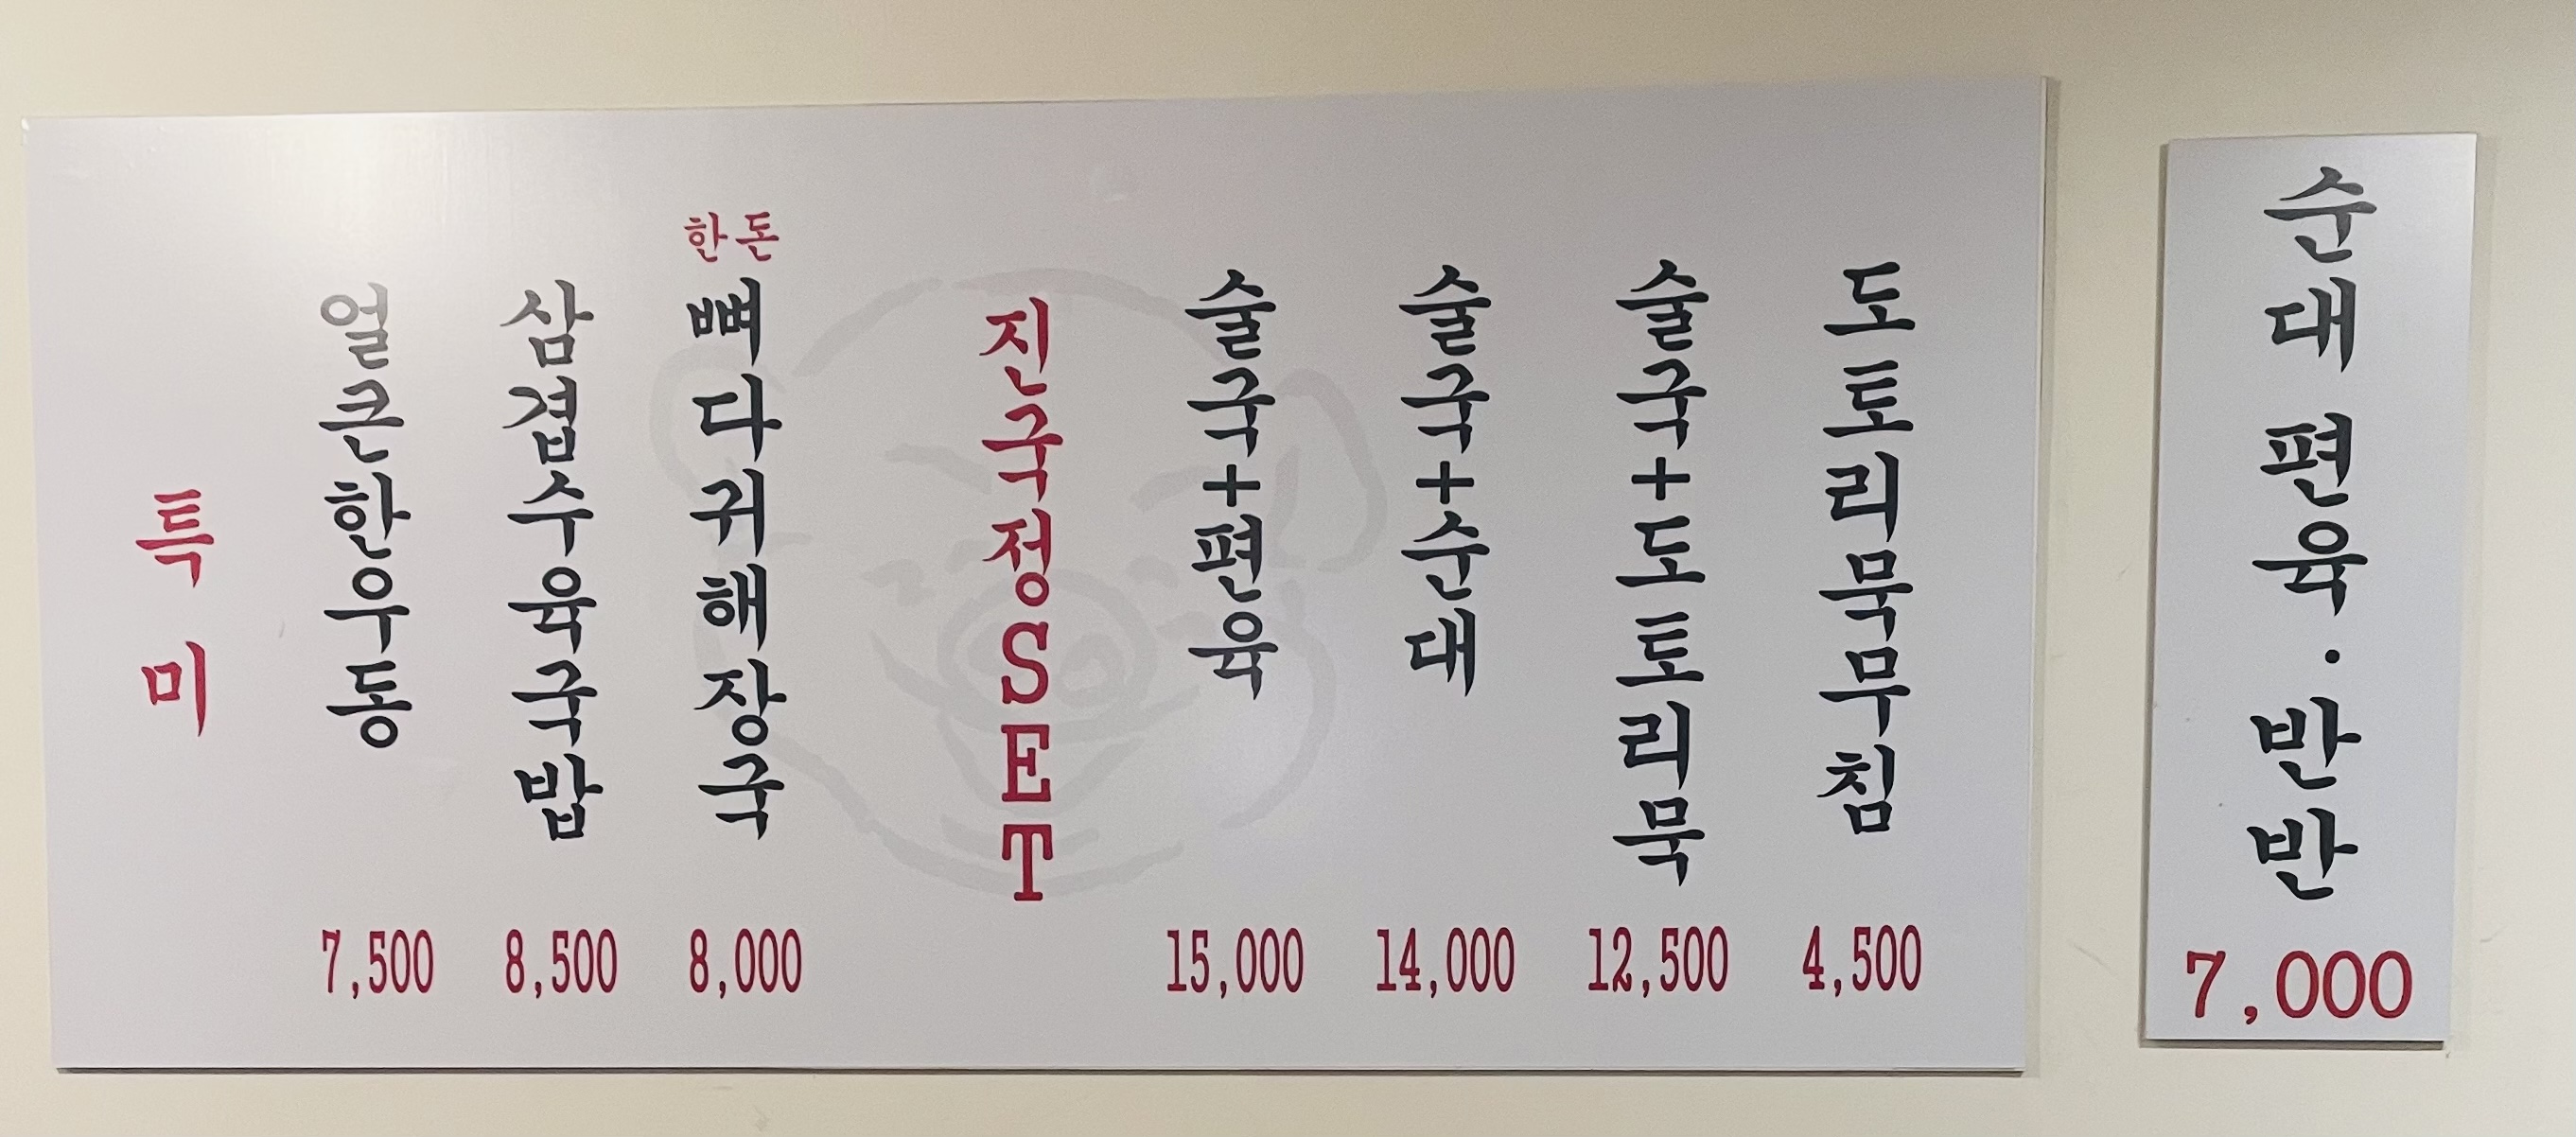 특미
얼큰한우동
7,500
삼겹수육국밥
8,500
한돈
뼈다귀해장국
8,000
진국정SET
술국+편육
15,000
술국+순대
14,000
술국+도토리묵
12,500
도토리묵무침
4,500
순대 편육·반반
7,000